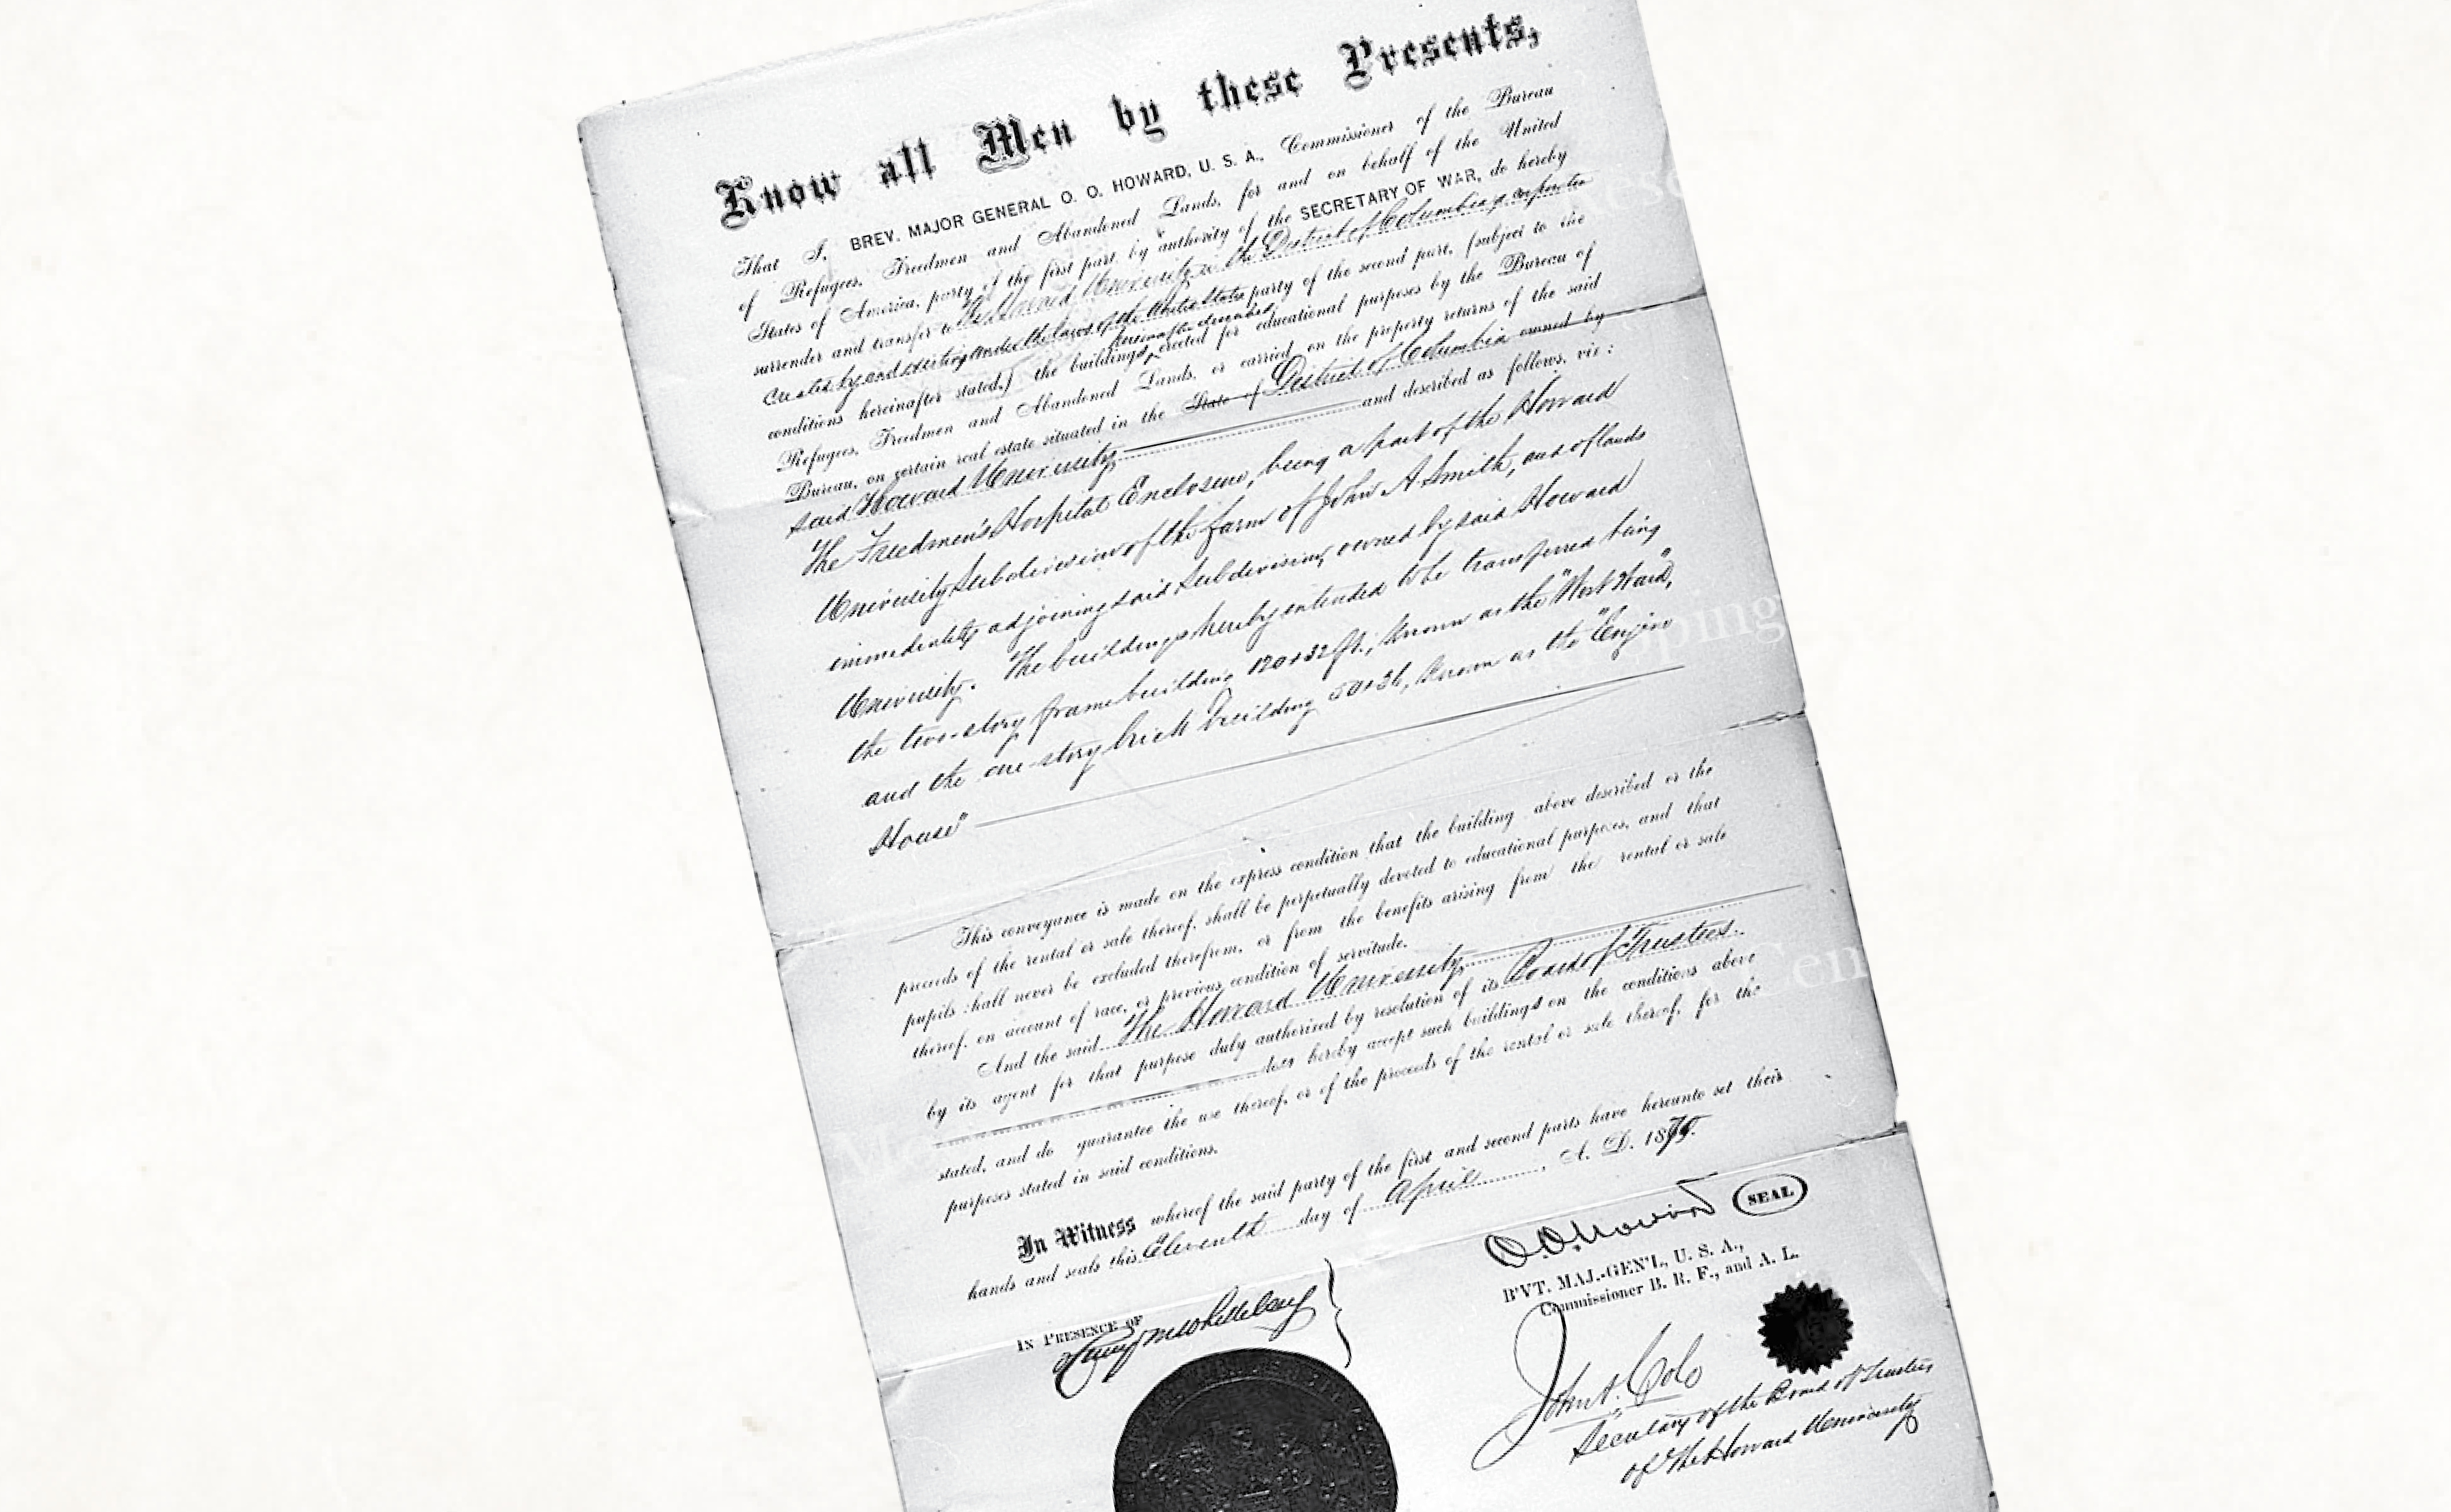 Know all Men by these Presents,
That I, BREV. MAJOR GENERAL O. O. HOWARD, U. S. A., Commissioner of the Bureau
of Refugees, Freedmen and Abandoned Lands, for and on behalf of the United
States of America, party of the first part, by authority of the SECRETARY OF WAR, do hereby
surrender and transfer to The Howard University in the District of Columbia, a corporation
created by and existing under the laws of the United States party of the second part, (subject to the
hereinafter described
conditions hereinafter stated,) the buildings erected for educational purposes by the Bureau of
Refugees, Freedmen and Abandoned Lands, or carried on the property returns of the said
Bureau, on certain real estate situated in the State of District of Columbia owned by
said Howard University and described as follows, viz:
The Freedmen's Hospital Enclosure, being a part of the Howard
University Subdivision of the farm of John A Smith, and of lands
immediately adjoining said Subdivision, owned by said Howard
University. The buildings hereby intended to be transferred being
the two-story frame building 120+32 ft., known as the "West Ward,"
and the one-story brick building 50+36, known as the "Engine
House"
This conveyance is made on the express condition that the building above described or the
proceeds of the rental or sale thereof, shall be perpetually devoted to educational purposes, and that
pupils shall never be excluded therefrom, or from the benefits arising from the rental or sale
thereof, on account of race, or previous condition of servitude.
And the said The Howard University,
by its agent for that purpose duly authorized by resolution of its Board of Trustees.
does hereby accept such buildings on the conditions above
stated, and do guarantee the use thereof, or of the proceeds of the rental or sale thereof, for the
purposes stated in said conditions.
In Witness whereof the said party of the first and second parts have hereunto set their
hands and seals this Eleventh day of April, A. D. 187
O.O. Howard SEAL
B'VT. MAJ.-GEN'L, U. S. A.,
Commissioner B. R. F., and A. L.
IN PRESENCE OF
John A. Cole
Secretary of the Board of Trustees
of The Howard University